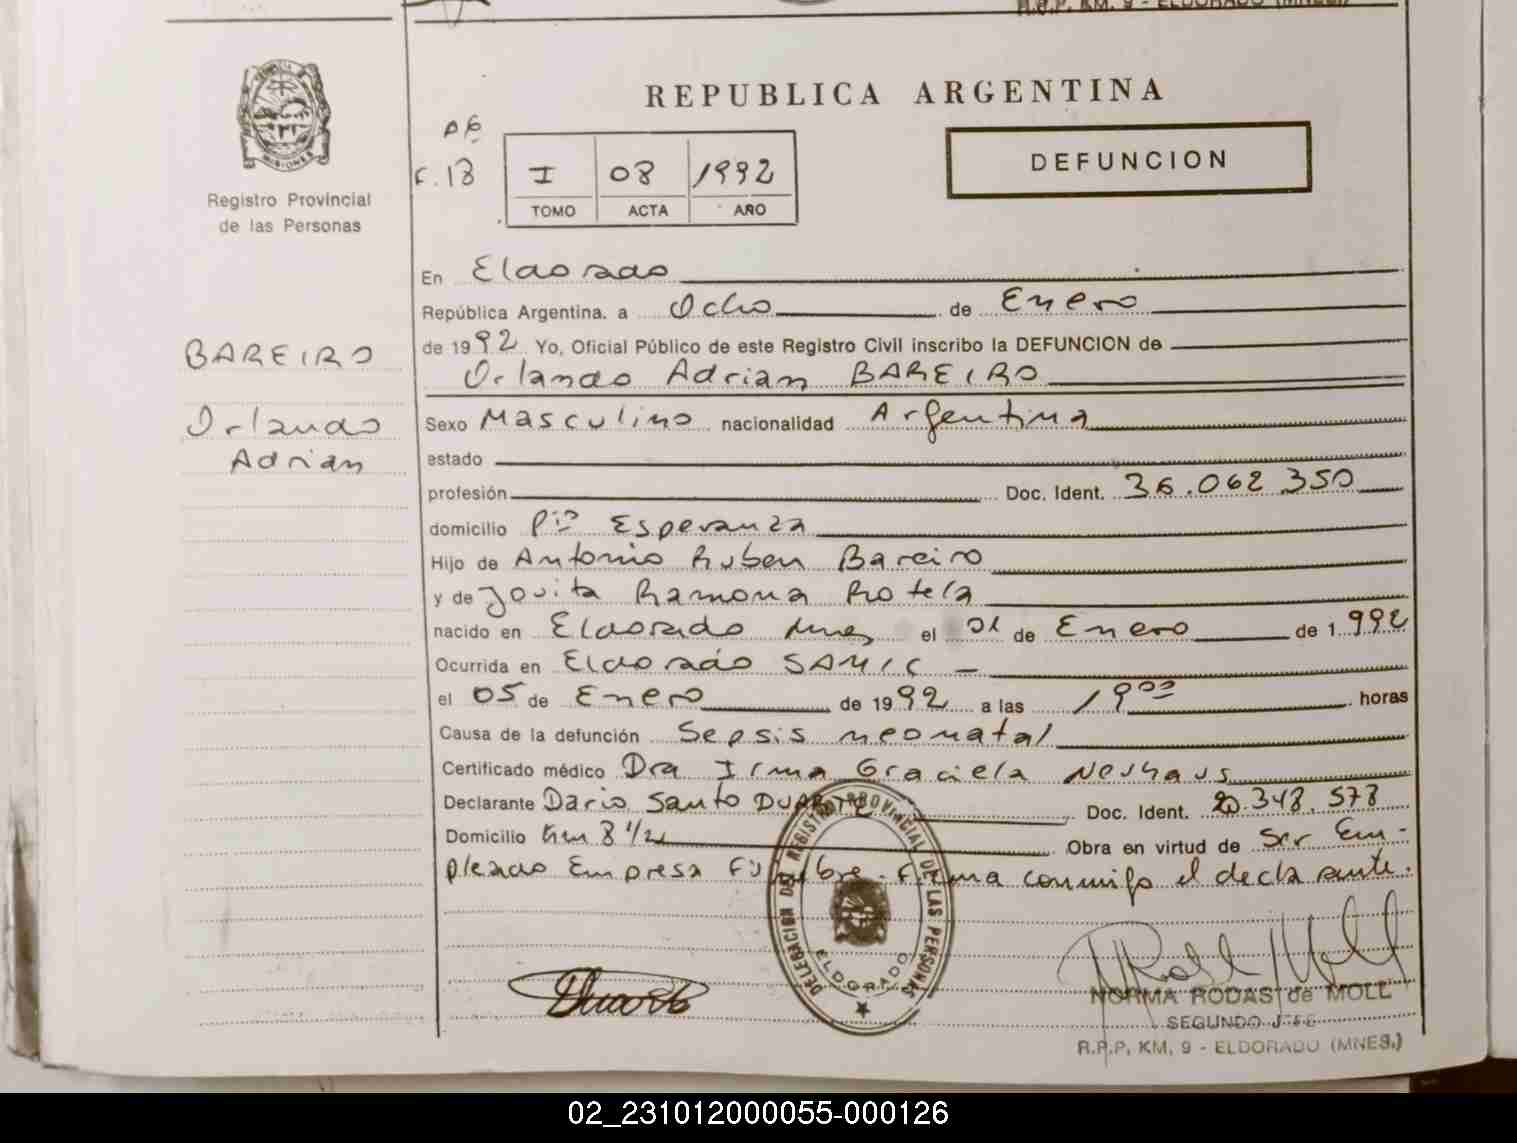 R.P.P. KM. 9 - ELDORADO (MNES.)
PROVINCIA DE MISIONES
Registro Provincial
de las Personas
REPUBLICA ARGENTINA
DEFUNCION
F. 13
I 08 1992
TOMO ACTA AÑO
BAREIRO
Orlando
Adrian
En Eldorado
República Argentina, a Ocho de Enero
de 1992 Yo, Oficial Público de este Registro Civil inscribo la DEFUNCION de
Orlando Adrian BAREIRO
Sexo Masculino nacionalidad Argentina
estado
profesión Doc. Ident. 36.062.350
domicilio Pto Esperanza
Hijo de Antonio Ruben Bareiro
y de Jovita Ramona Rotela
nacido en Eldorado Mnes el 01 de Enero de 1.992
Ocurrida en Eldorado SAMIC -
el 05 de Enero de 1992 a las 19⁰⁰ horas
Causa de la defunción Sepsis neonatal
Certificado médico Dra Irma Graciela Neuhaus
Declarante Dario Santo DUARTE Doc. Ident. 20.348.578
Domicilio Km 8 1/2 Obra en virtud de Ser Em-
pleado Empresa Fúnebre. Firma conmigo el declarante.
DELEGACION DEL REGISTRO PROVINCIAL DE LAS PERSONAS
ELDORADO
Duarte
NORMA RODAS de MOLL
SEGUNDO JEFE
R.P.P. KM. 9 - ELDORADO (MNES.)
02_231012000055-000126